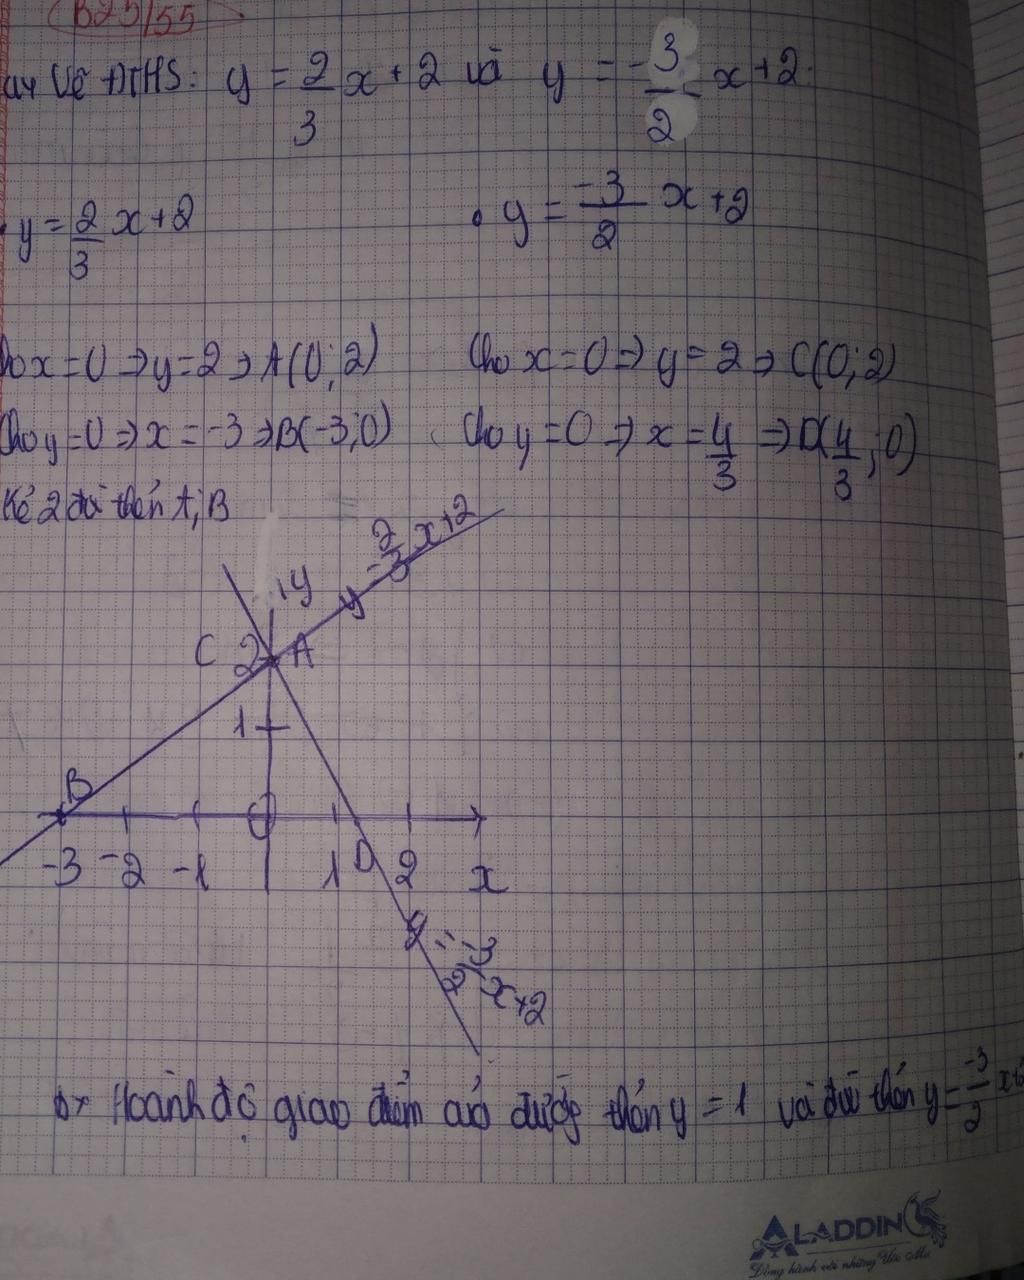 B25/55
a, Vẽ ĐTHS: y = 2/3 x + 2 và y = -3/2 x + 2.
• y = 2/3 x + 2 • y = -3/2 x + 2
Cho x = 0 ⇒ y = 2 ⇒ A(0; 2) Cho x = 0 ⇒ y = 2 ⇒ C(0; 2)
Cho y = 0 ⇒ x = -3 ⇒ B(-3; 0) Cho y = 0 ⇒ x = 4/3 ⇒ D(4/3; 0)
Kẻ 2 đt A; B
y = 2/3 x + 2
y
C 2 A
1
B
O
-3 -2 -1 1 D 2 x
y = -3/2 x + 2
b, Hoành độ giao điểm của đường thẳng y = 1 và đt thẳng y = -3/2 x +
ALADDIN
Đồng hành với những Ước Mơ